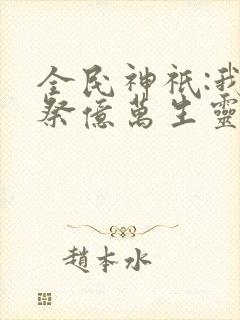 全民神祇:我
祭億萬生靈
趙本水